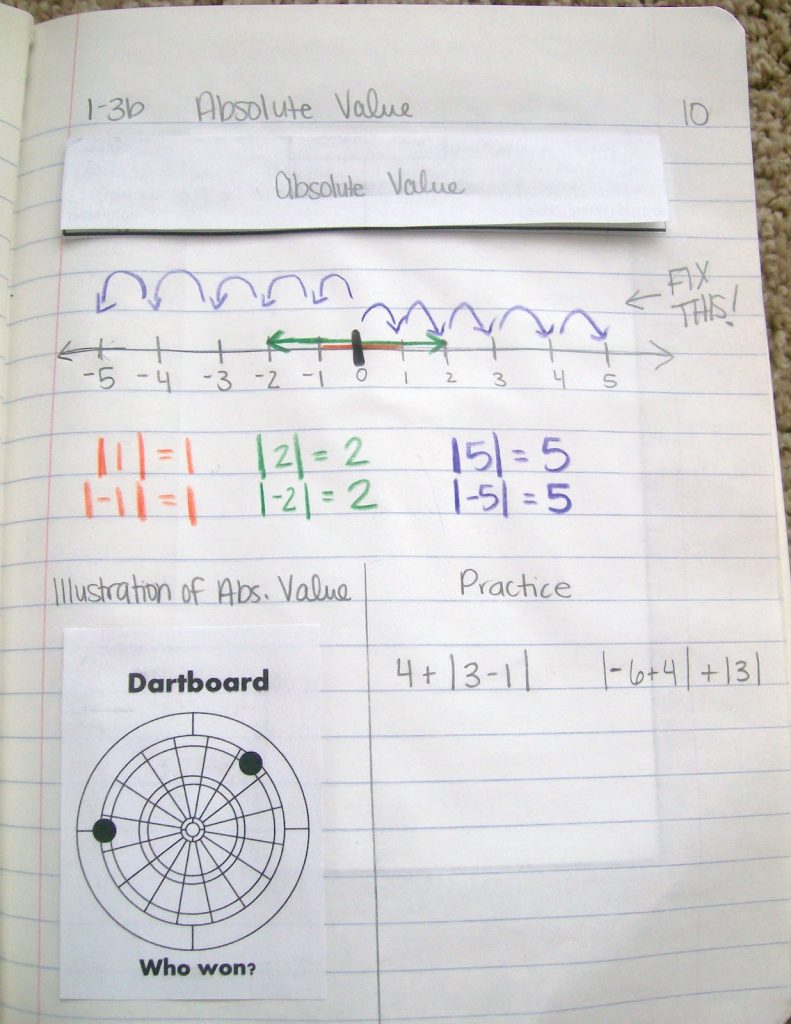 1-3b Absolute Value 10
Absolute Value
FIX
THIS!
-5 -4 -3 -2 -1 0 1 2 3 4 5
|1| = 1 |2| = 2 |5| = 5
|-1| = 1 |-2| = 2 |-5| = 5
Illustration of Abs. Value Practice
4 + |3 - 1| |-6+4| + |3|
Dartboard
Who won?